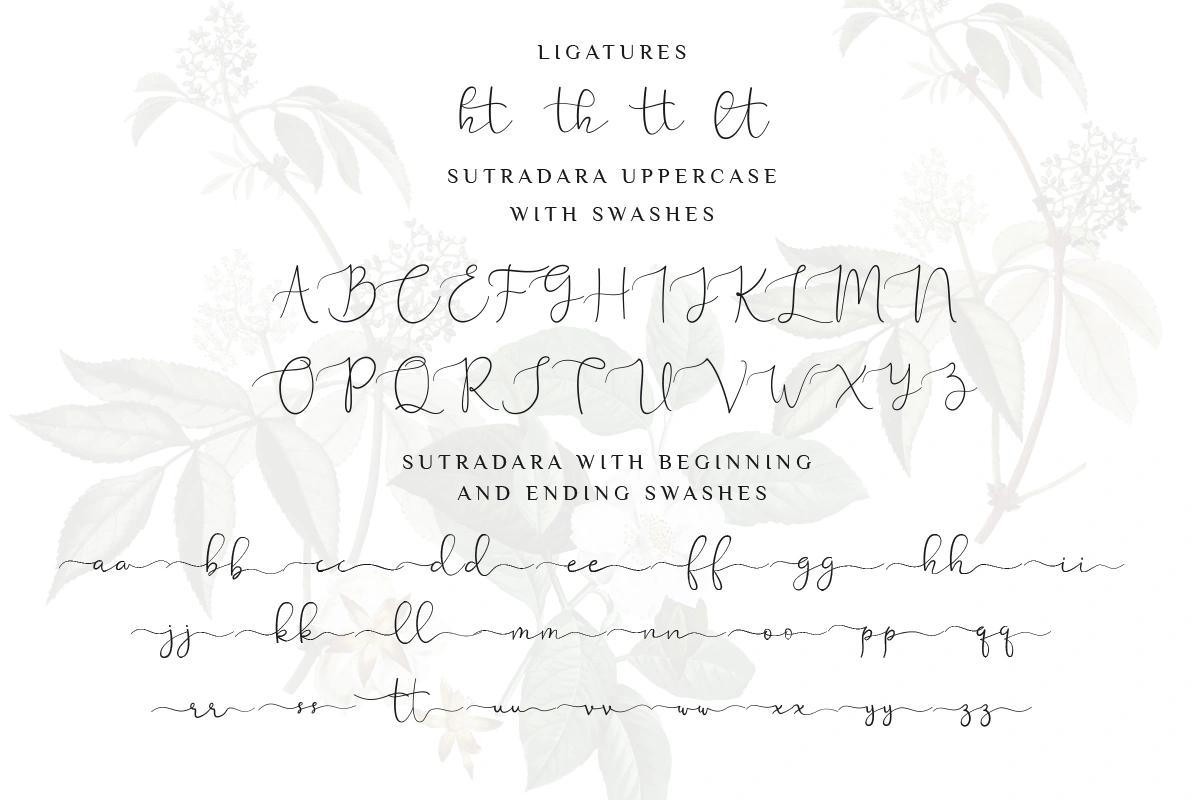 LIGATURES
ht th tt lt
SUTRADARA UPPERCASE
WITH SWASHES
A B C E F G H I J K L M N
O P Q R S T U V W X Y Z
SUTRADARA WITH BEGINNING
AND ENDING SWASHES
aa bb cc dd ee ff gg hh ii
jj kk ll mm nn oo pp qq
rr ss tt uu vv ww xx yy zz